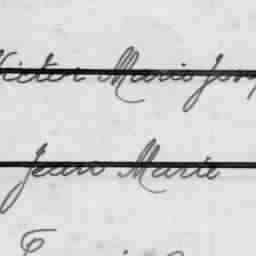 Victor Marie Jose
Jean Marie